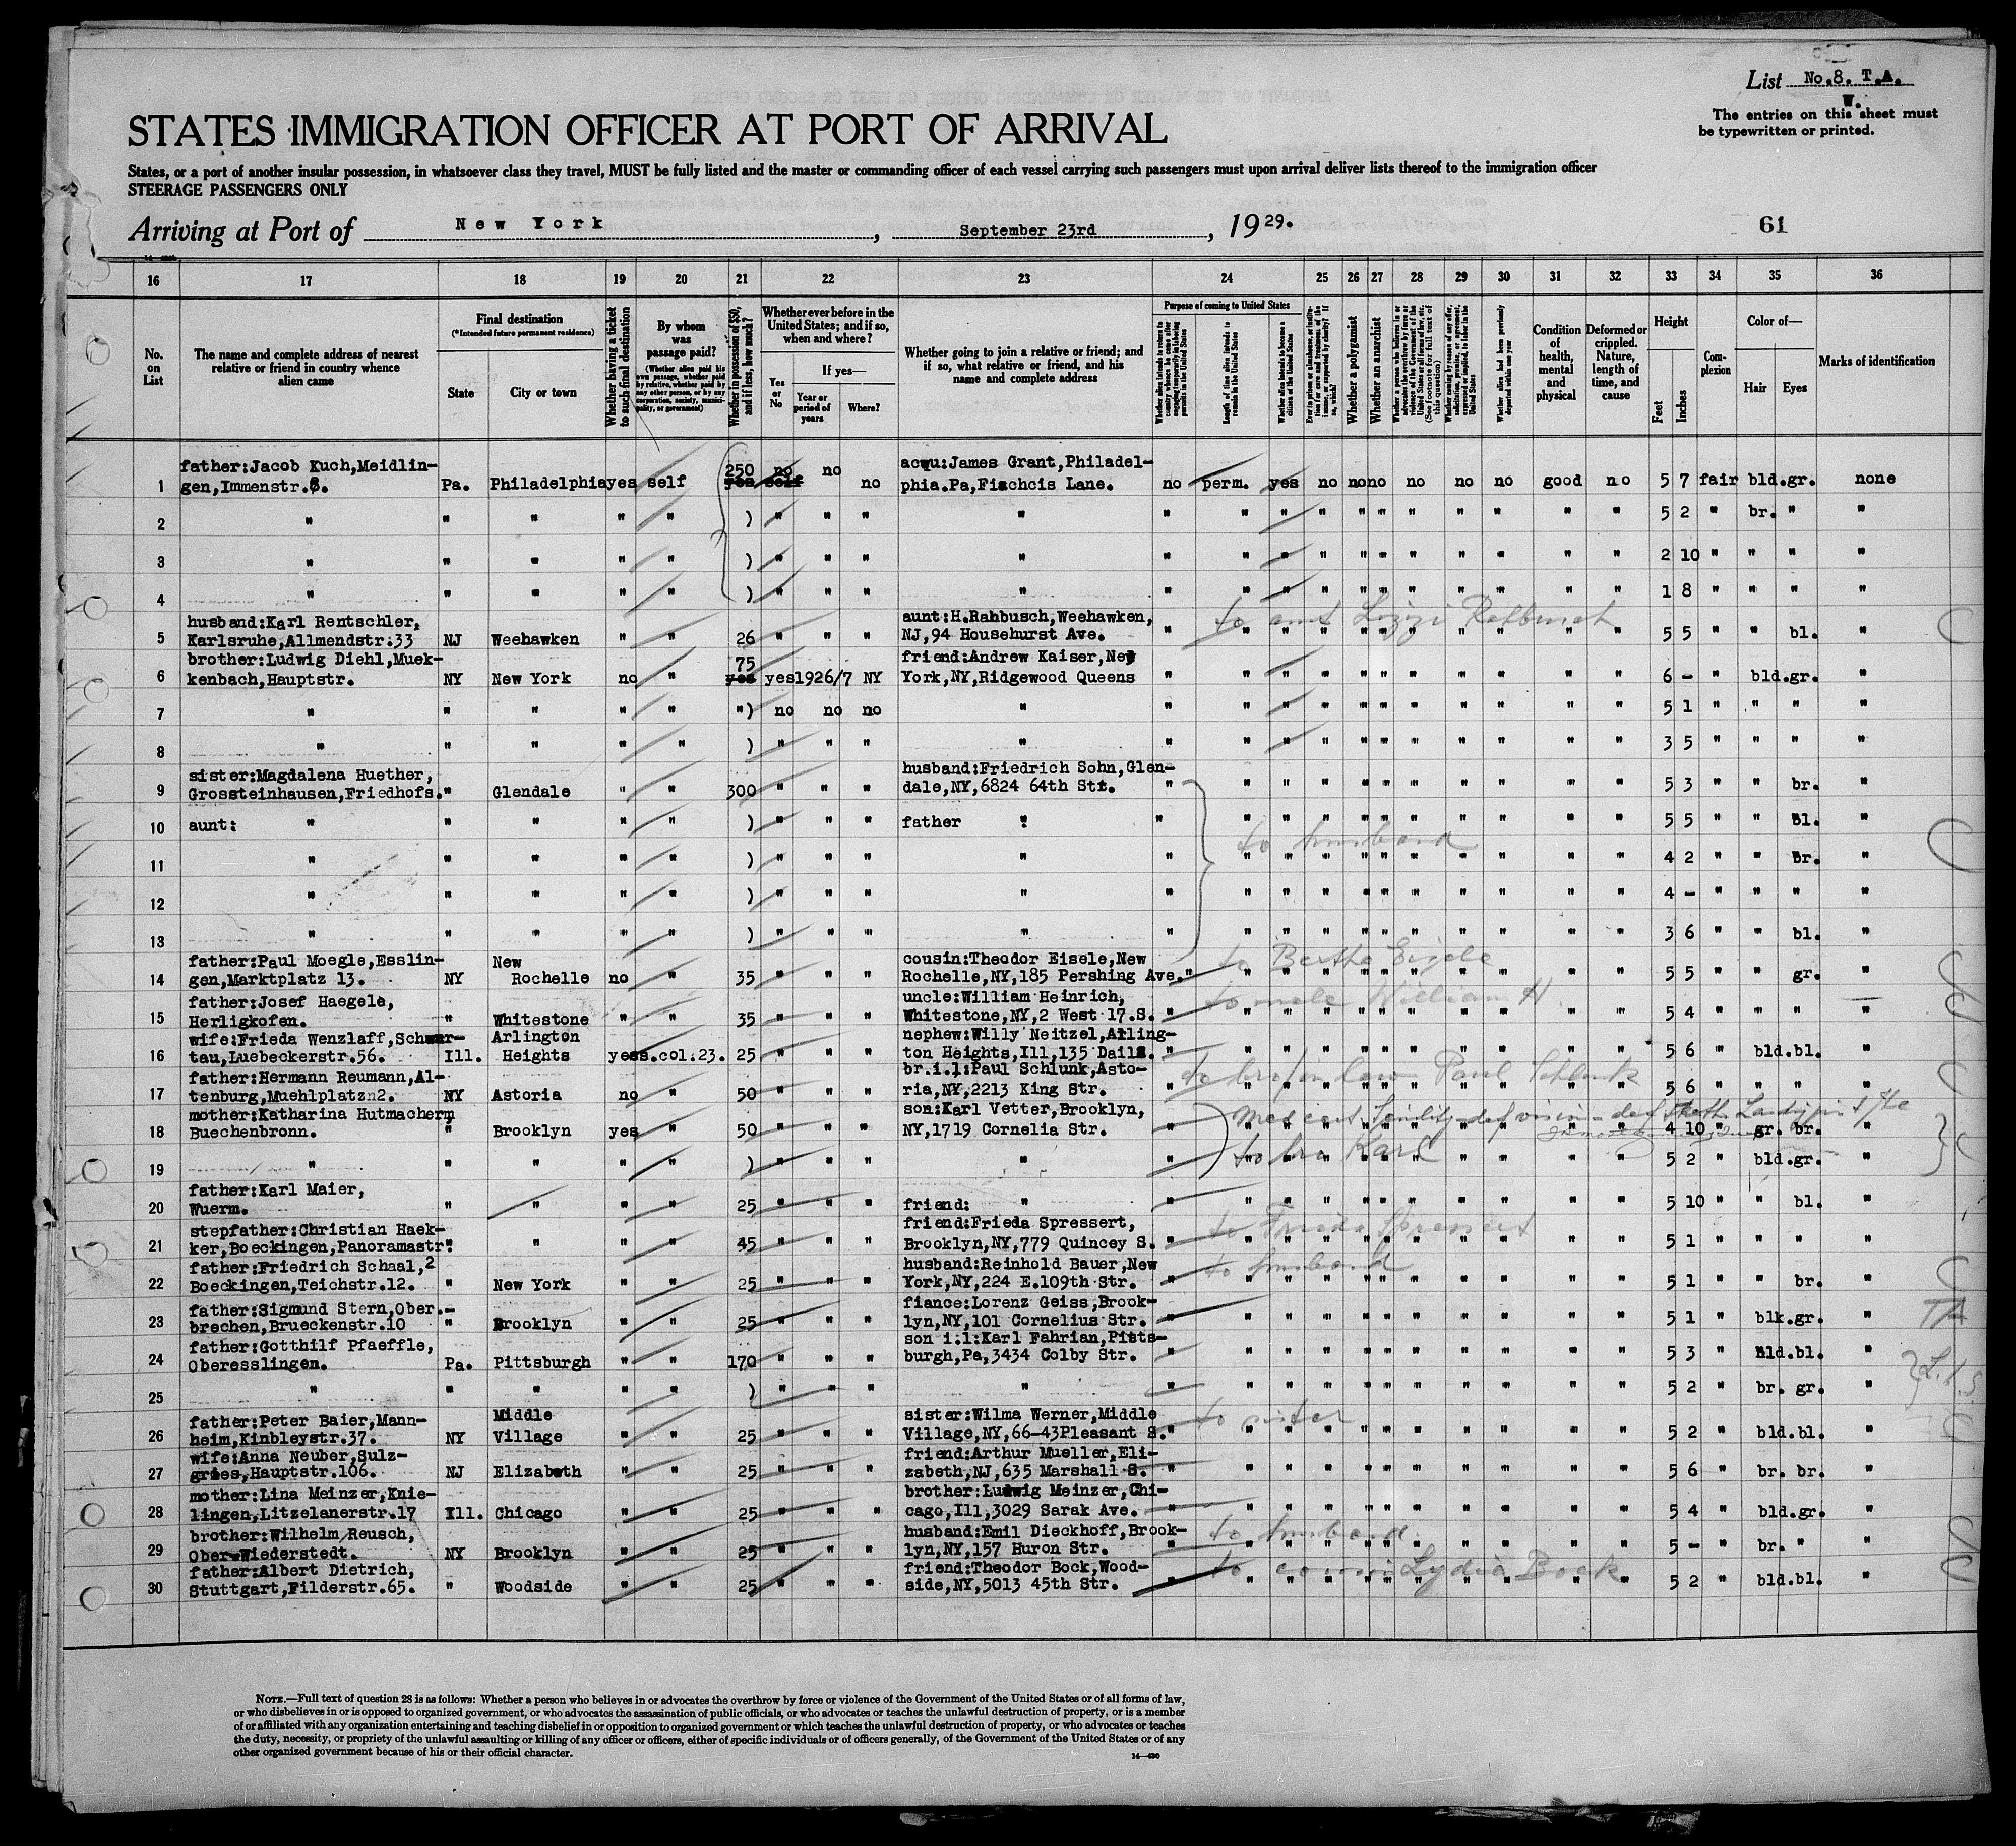 List No.8. T.A.
W.
The entries on this sheet must
be typewritten or printed.
STATES IMMIGRATION OFFICER AT PORT OF ARRIVAL
States, or a port of another insular possession, in whatsoever class they travel, MUST be fully listed and the master or commanding officer of each vessel carrying such passengers must upon arrival deliver lists thereof to the immigration officer
STEERAGE PASSENGERS ONLY
Arriving at Port of New York, September 23rd, 1929.
61
16 17 18 19 20 21 22 23 24 25 26 27 28 29 30 31 32 33 34 35 36
No. on List
The name and complete address of nearest relative or friend in country whence alien came
Final destination
(*Intended future permanent residence)
State
City or town
Whether having a ticket to such final destination
By whom was passage paid?
(Whether alien paid his own passage, whether paid by relative, whether paid by any other person, or by any corporation, society, municipality, or government)
Whether in possession of $50, and if less, how much?
Whether ever before in the United States; and if so, when and where?
Yes or No
If yes—
Year or period of years
Where?
Whether going to join a relative or friend; and if so, what relative or friend, and his name and complete address
Purpose of coming to United States
Length of time alien intends to remain in the United States
Whether alien intends to become a citizen of the United States
Whether a polygamist
Whether an anarchist
Condition of health, mental and physical
Deformed or crippled. Nature, length of time, and cause
Height
Feet
Inches
Complexion
Color of—
Hair
Eyes
Marks of identification
father:Jacob Kuch,Meidlin- 250 no no acqu:James Grant,Philadel-
1 gen,Immenstr.8. Pa. Philadelphia yes self yes self no phia.Pa,Fischcis Lane. no perm. yes no no no no no no good no 5 7 fair bld.gr. none
2 " " " " " ) " " " " " " " " " " " " " " " 5 2 " br. " "
3 " " " " " ) " " " " " " " " " " " " " " " 2 10 " " " "
4 " " " " " ) " " " " " " " " " " " " " " " 1 8 " " " "
husband:Karl Rentschler, aunt:H.Rahbusch,Weehawken, to aunt Lizzi
5 Karlsruhe,Allmendstr.33 NJ Weehawken " " 26 " " " NJ,94 Househurst Ave. " " " " " " " " " " " 5 5 " " bl. "
brother:Ludwig Diehl,Muek- 75 friend:Andrew Kaiser,New
6 kenbach,Hauptstr. NY New York no " yes yes1926/7 NY York,NY,Ridgewood Queens " " " " " " " " " " " 6 - " bld.gr. "
7 " " " " " ") no no no " " " " " " " " " " " " 5 1 " " " "
8 " " " " " ) " " " " " " " " " " " " " " " 3 5 " " " "
sister:Magdalena Huether, husband:Friedrich Sohn,Glen-
9 Grossteinhausen,Friedhofs. " Glendale " " 300 " " " dale,NY,6824 64th Str. " " " " " " " " " " " 5 3 " " br. "
10 aunt: " " " " " ) " " " father : " " " " " " " " " " " 5 5 " " bl. "
to husband
11 " " " " " ) " " " " " " " " " " " " " " " 4 2 " " br. "
12 " " " " " ) " " " " " " " " " " " " " " " 4 - " " " "
13 " " " " " ) " " " " " " " " " " " " " " " 3 6 " " bl. "
father:Paul Moegle,Esslin- New cousin:Theodor Eisele,New to Bertha Eisele
14 gen,Marktplatz 13. NY Rochelle no " 35 " " " Rochelle,NY,185 Pershing Ave. " " " " " " " " " " " 5 5 " " gr. "
father:Josef Haegele, uncle:William Heinrich, to uncle William H.
15 Herligkofen. " Whitestone " " 35 " " " Whitestone,NY,2 West 17.S. " " " " " " " " " " " 5 4 " " " "
wife:Frieda Wenzlaff,Schwar- Arlington nephew:Willy Neitzel,Arling-
16 tau,Luebeckerstr.56. Ill. Heights yes s.col.23. 25 " " " ton Heights,Ill,135 Dails. " " " " " " " " " " " 5 6 " bld.bl. "
father:Hermann Reumann,Al- br.i.l:Paul Schlunk,Asto- to bro in law Paul Schlunk
17 tenburg,Muehlplatzn2. NY Astoria no " 50 " " " ria,NY,2213 King Str. " " " " " " " " " " " 5 6 " " " "
mother:Katharina Hutmacher, son:Karl Vetter,Brooklyn, Med cert Senility def vision
18 Buechenbronn. " Brooklyn yes " 50 " " " NY,1719 Cornelia Str. " " " " " " " " " " " 4 10 " gr. br. "
to bro Karl
19 " " " " " ) " " " " " " " " " " " " " " " 5 2 " bld.gr. "
father:Karl Maier,
20 Wuerm. " " " " 25 " " " friend: " " " " " " " " " " " " 5 10 " " bl. "
stepfather:Christian Haek- friend:Frieda Spressert, to Frieda Spressert
21 ker,Boeckingen,Panoramastr. " " " " 45 " " " Brooklyn,NY,779 Quincey S. " " " " " " " " " " " 5 1 " " " "
father:Friedrich Schaal,2 husband:Reinhold Bauer,New to husband
22 Boeckingen,Teichstr.12. " New York " " 25 " " " York,NY,224 E.109th Str. " " " " " " " " " " " 5 1 " " br. "
father:Sigmund Stern,Ober.- fiance:Lorenz Geiss,Brook-
23 brechen,Brueckenstr.10 " Brooklyn " " 25 " " " lyn,NY,101 Cornelius Str. " " " " " " " " " " " 5 1 " blk.gr. "
father:Gotthilf Pfaeffle, son i.l:Karl Fahrian,Pitts-
24 Oberesslingen. Pa. Pittsburgh " " 170 " " " burgh,Pa,3434 Colby Str. " " " " " " " " " " " 5 3 " bld.bl. "
25 " " " " " ) " " " " " " " " " " " " " " " 5 2 " br. gr. "
father:Peter Baier,Mann- Middle sister:Wilma Werner,Middle to sister
26 heim,Kinbleystr.37. NY Village " " 25 " " " Village,NY,66-43Pleasant S. " " " " " " " " " " " 5 2 " bld.bl. "
wife:Anna Neuber,Sulz- friend:Arthur Mueller,Eli-
27 gries,Hauptstr.106. NJ Elizabeth " " 25 " " " zabeth,NJ,635 Marshall S. " " " " " " " " " " " 5 6 " br. br. "
mother:Lina Meinzer,Knie- brother:Ludwig Meinzer,Chi-
28 lingen,Litzelanerstr.17 Ill. Chicago " " 25 " " " cago,Ill,3029 Sarak Ave. " " " " " " " " " " " 5 4 " bld.gr. "
brother:Wilhelm Reusch, husband:Emil Dieckhoff,Brook- to husband
29 Ober-Wiederstedt. NY Brooklyn " " 25 " " " lyn,NY,157 Huron Str. " " " " " " " " " " " 5 - " br. " "
father:Albert Dietrich, friend:Theodor Bock,Wood- to cousin Lydia Bock
30 Stuttgart,Filderstr.65. " Woodside " " 25 " " " side,NY,5013 45th Str. " " " " " " " " " " " 5 2 " bld.bl. "
NOTE.—Full text of question 28 is as follows: Whether a person who believes in or advocates the overthrow by force or violence of the Government of the United States or of all forms of law,
or who disbelieves in or is opposed to organized government, or who advocates the assassination of public officials, or who advocates or teaches the unlawful destruction of property, or is a member
of or affiliated with any organization entertaining and teaching disbelief in or opposition to organized government or which teaches the unlawful destruction of property, or who advocates or teaches
the duty, necessity, or propriety of the unlawful assaulting or killing of any officer or officers, either of specific individuals or of officers generally, of the Government of the United States or of any
other organized government because of his or their official character.
14—430